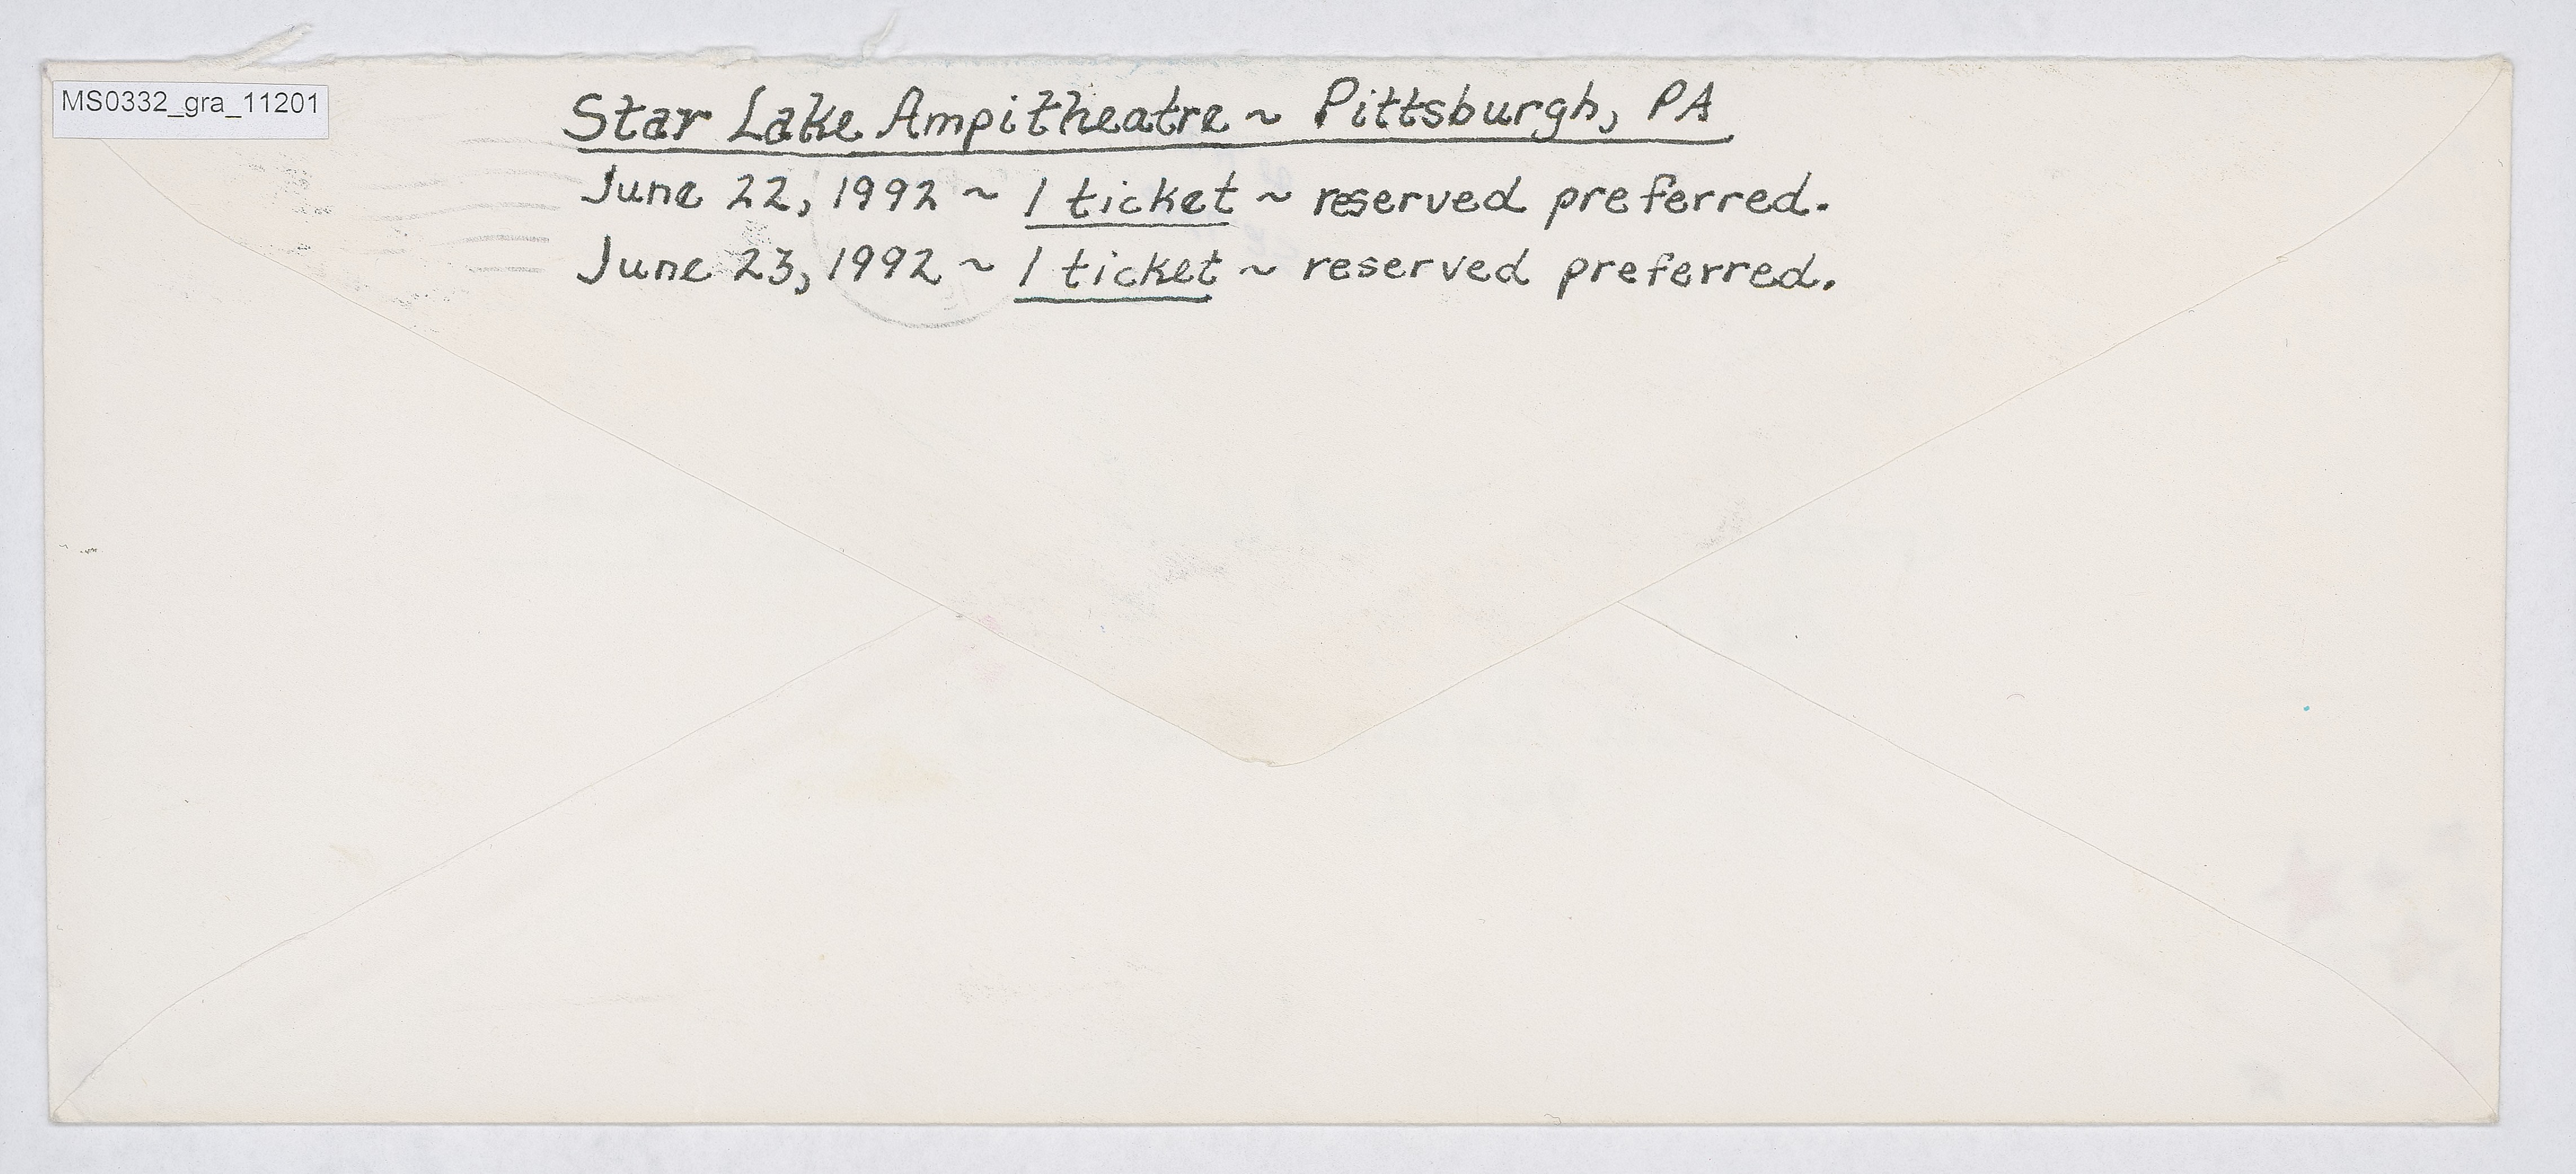 MS0332_gra_11201
Star Lake Ampitheatre ~ Pittsburgh, PA
June 22, 1992 ~ 1 ticket ~ reserved preferred.
June 23, 1992 ~ 1 ticket ~ reserved preferred.